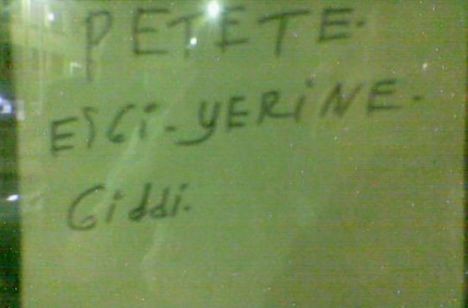 PETETE.
ESGi-YERiNE.
Giddi.